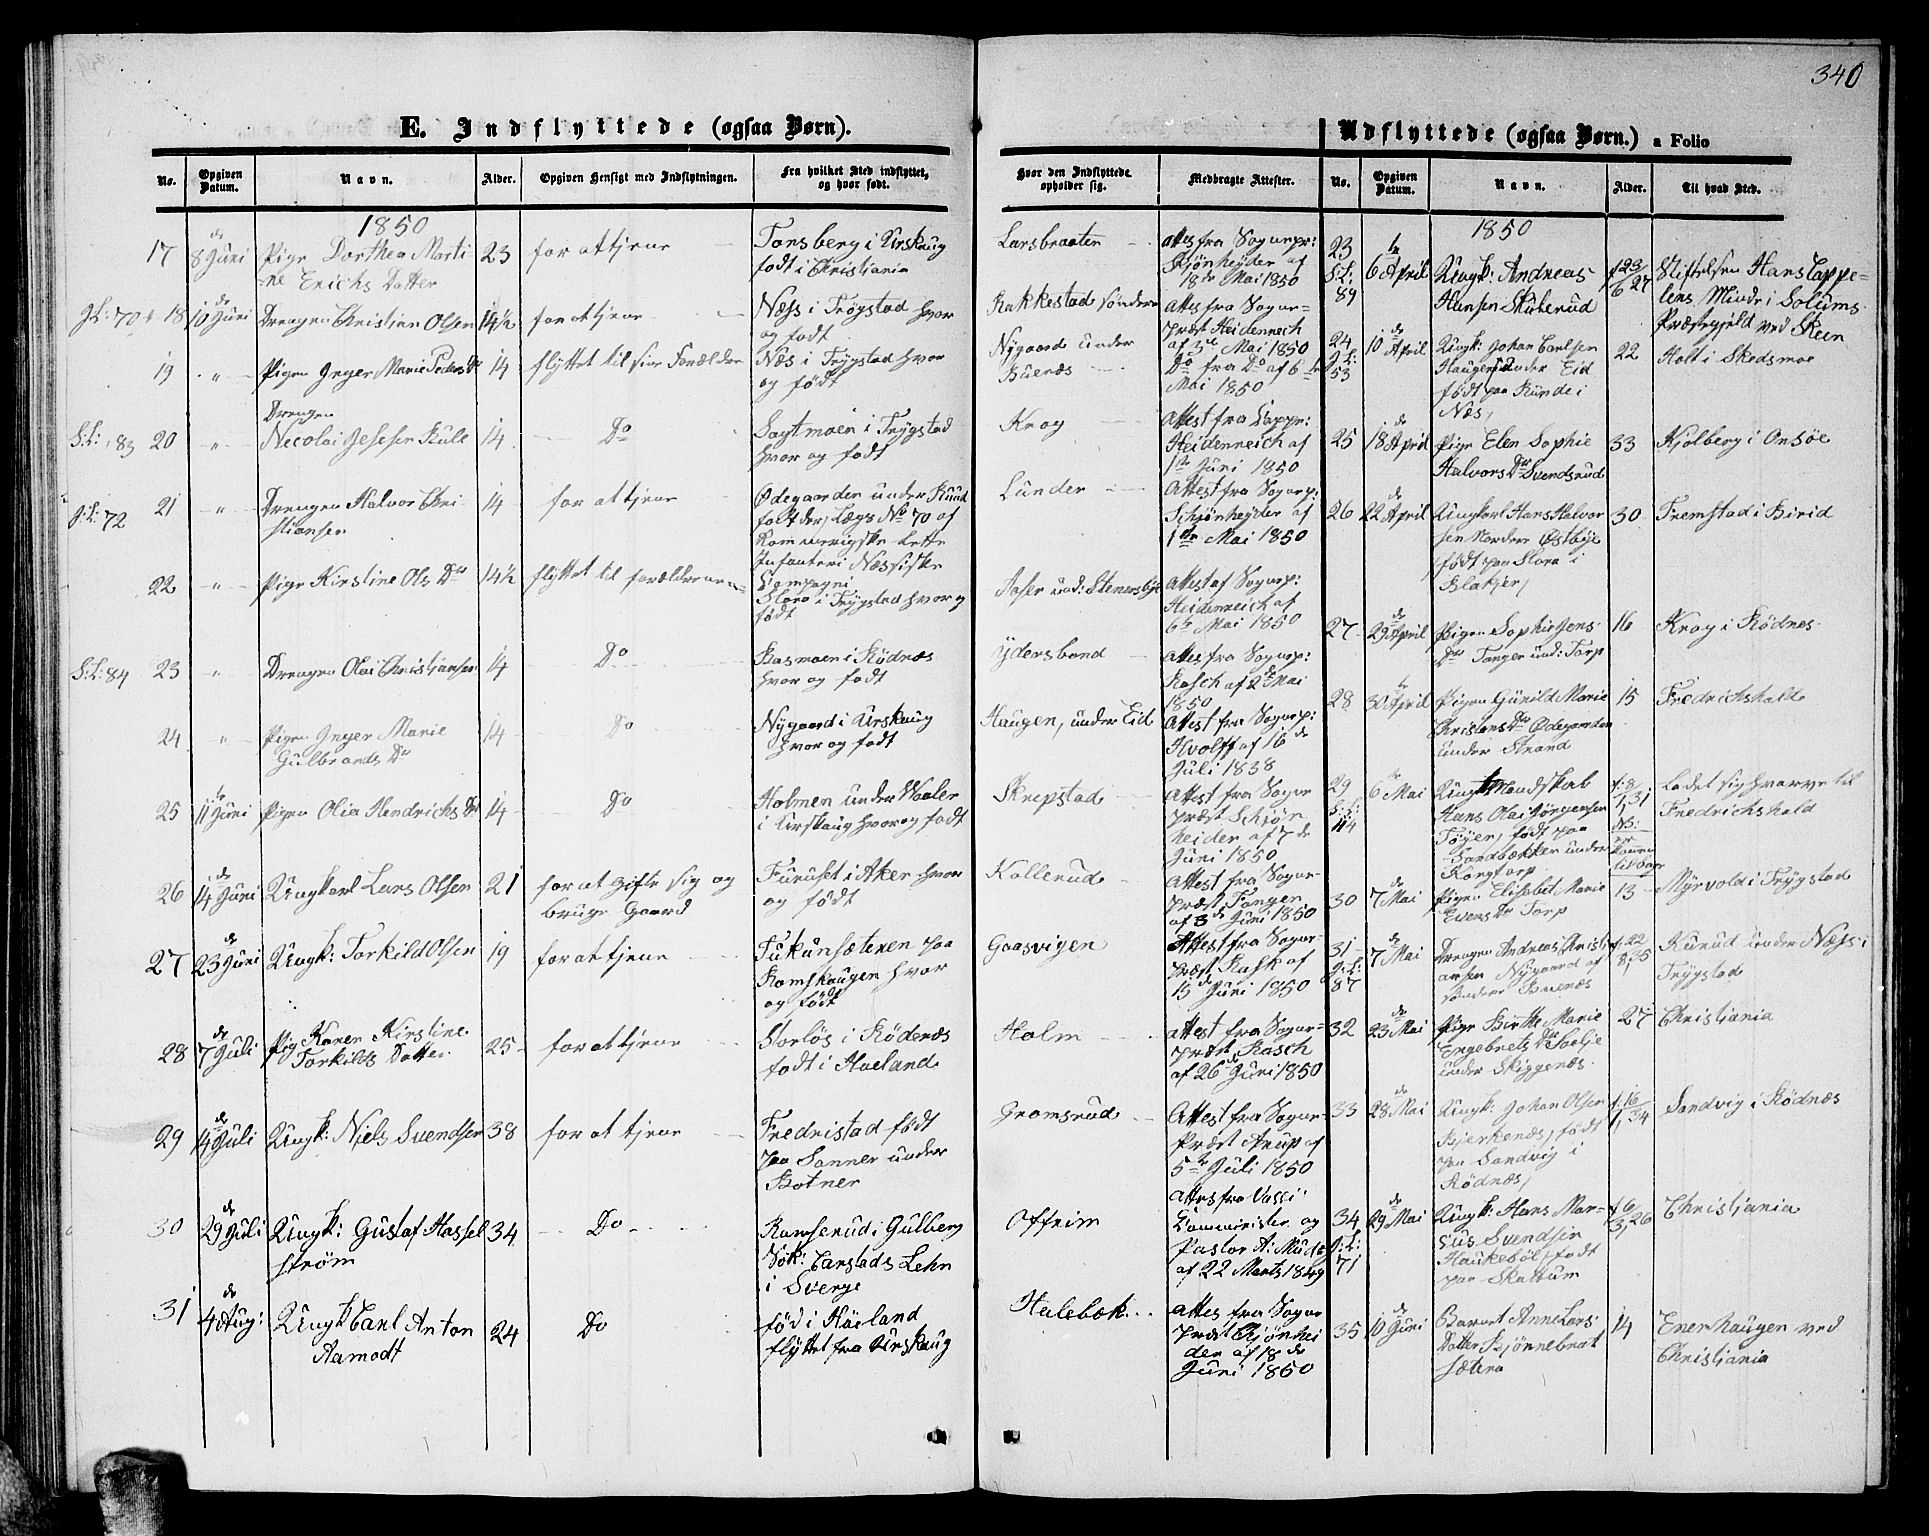 340
E. Indflyttede (ogsaa Børn).
Udflyttede (ogsaa Børn.) a Folio
No. Opgiven Datum. Navn. Alder. Opgiven Hensigt med Indflytningen. Fra hvilket Sted indflyttet, og hvor født.
Hvor den Indflyttede opholder sig. Medbragte Attester. No. Opgiven Datum. Navn. Alder. Til hvad Sted.
1850
17 8de Juni Pige Dorthea Marti
ne Erichs Datter 23 for at tjene
Tonsberg i Urskaug
født i Christiania
Larsbraaten
Attest fra Sognepr:
Schjønheyder af
18de Mai 1850
18 10de Juni Drengen Christian Olsen 14½ for at tjene
Næss i Trøgstad hvor
og født
Rakkestad søndere
Attes fra Sogne-
præst Heidenreich
af 3de Mai 1850
19 " Pigen Inger Marie Peders Dr 14 flyttet til sine Forældre
Næs i Trygstad hvor
og født
Nygaard under
Buenæs
Do fra Do af 6te
Mai 1850
S:L: 83 20 " Drengen
Necolai Jensen Kule 14 Do
Sagtmoen i Trygstad
hvor og født
Krog
Attest fra
Heidenreich af
1ste Juni 1850
J:L: 72 21 " Drengen Halvor Chri-
stiansen 14 for at tjene
Ødegaarden under Ruud
født der, Lægs No 70 af
Romerrigske lette
Infanteri Næssiske
Compagni
Lunder
Attest fra Sognep:
Schjønheyder af
1ste Mai 1850
22 " Pige Kirstine Ols Dr 14½ flyttet til forældrene
Slora i Trygstad hvor og
født
Aaser und: Stenersbye
Attest af Sognep:
Heidenreich af
6te Mai 1850
S:L: 84 23 " Drengen Olai Christiansen 14 Do
Basmoen i Rødnæs
hvor og født
Ydersbond
Attes fra Sognep:
Rasch af 2de Mai
1850
24 " Pigen Inger Marie
Gulbrands Dr 14 Do
Nygaard i Urskaug
hvor og født
Haugen, under Eid
Attest fra Sognep:
Hvolff af 16de
Juli 1838
25 11te Juni Pigen Olia Hendrichs Dr 14 Do
Holmen under Waaler
i Urskaug hvor og født
Skrepstad
Attest fra Sogne
præst Schjøn
heider af 7de
Juni 1850
26 14de Juni Ungkarl Lars Olsen 21 for at gifte sig og
bruge Gaard
Furuset i Aker hvor
og født
Kollerud
Attest fra Sogne-
præst Fangen
af 3de Juni 1850
27 23de Juni Ungk: Torkild Olsen 19 for at tjene
Tukunsæteren paa
Romskaugen hvor
og født
Gaasvigen
Attest fra Sogne-
præst Rask af
15de Juni 1850
28 7de Juli Pig Karen Kirstine
Torkilds Datter 25 for at tjene
Storløs i Rødenæs
født i Høeland
Holm
Attest fra Sogne-
præst Rasch
af 26de Juni 1850
29 14de Juli Ungk: Niels Svendsen 38 for at tjene
Fredristad født
paa Sanner under
Botner
Gromsrud
Attest fra Sogne-
Præst Arup af
5te Juli 1850
30 29de Juli Ungk: Gustaf Hassel
strøm 34 Do
Ramserud i Gulberg
Sok: Carstads Lehn
i Sverge
Offrim
Attes fra
Comminister og
Pastor A: Mude
af 22 Marts 1849
31 4de Aug: Ungk Carl Anton
Aamodt 24 Do
fød i Häeland
flyttet fra Urskaug
Halebæk
Attes fra Sogne
præst Schjønhei
der af 18de
Juni 1850
1850
23
S:L:
89 6te April Ungk: Andreas
Hansen Skukerud f 23/6 27
Stiftelsen Hans Cappe-
lens Minde i Solums
Præstegjeld ved Skeen
24
J:L:
53 10de April Ungk: Johan Carlsen
Haugen under Eid
født paa Runde i
Næs, 22 Holt i Skedsmoe
25 18de April Pige Elen Sophie
Halvors Dr Svendsrud 33 Kjølberg i Onsøe
26 22de April Ungkarl Hans Halvor
sen Nordere Østbye
født paa Slora i
Blakjer, 30 Fremstad i Birid
27 29de April Pigen Sophie Jens
Dr Tanger und: Torp 16 Krog i Rødnes
28 30te April Pigen Gunild Marie
Christens Dr Ødegaarden
under Strand 15 Fredrichshald
29
S:L:
114 6te Mai Ungt Mandskab
Hans Olai Jørgensen
Tøyen, født paa
Sandbækken under
Kragtorp f: 8/1, 31
Ladet sig hverve til
Fredrichshald
30 7de Mai Pigen Elisebet Marie
Evens Dr Torp 13 Myrvold i Trygstad
31
J:L:
87 7de Mai Drengen Andreas Christi
ansen Nygaard af
søndere Buenæs f. 22/8, 35
Kurud under Næss i
Trygstad
32 23de Mai Pige Birthe Marie
Engebrets Dr Saltje
under Skiggenæs. 27 Christiania
33 28de Mai Ungk: Johan Olsen
Bjerkenæs, født
paa Sandvig i
Rødnæs, f. 16/1, 34 Sandvig i Rødnæs
34
J:L:
71 29de Mai Ungk: Hans Mar-
sius Svendsen
Haukebøl, født
paa Skattum f 6/3, 26 Christiania
35 10de Juni Barnet Anne Lars
Datter Skjønnebrat
sætera 14 Enerhaugen ved
Christiania